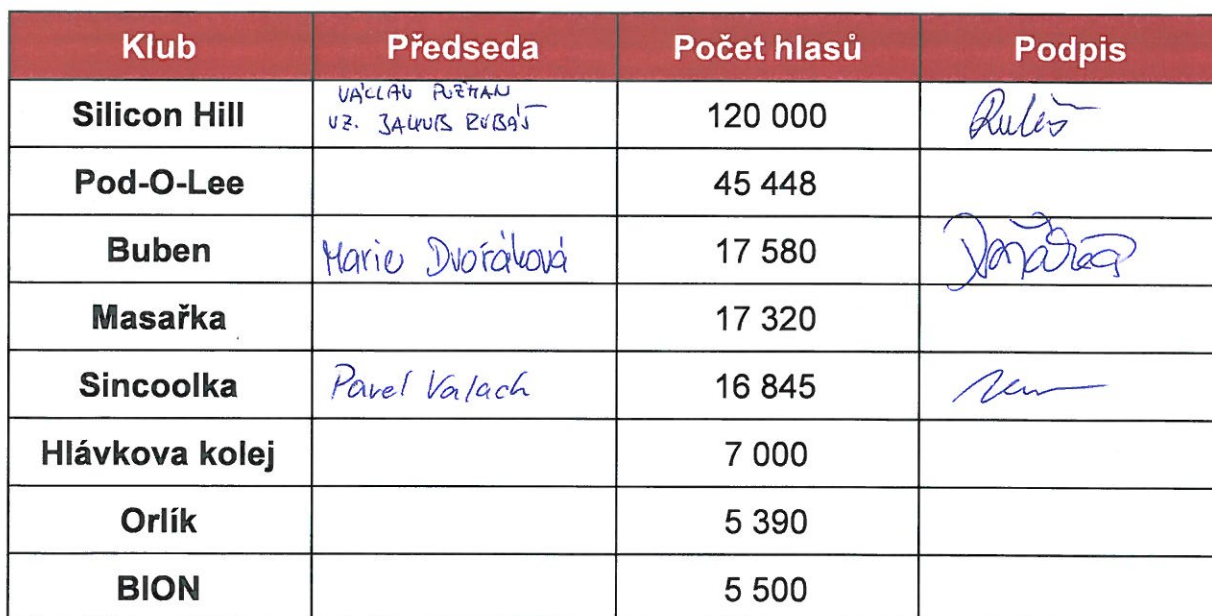 Klub Předseda Počet hlasů Podpis
Silicon Hill VÁCLAV POŽMAN 120 000
VZ. JAKUB RUBÁŠ
Pod-O-Lee 45 448
Buben Marie Dvořáková 17 580
Masařka 17 320
Sincoolka Pavel Valach 16 845
Hlávkova kolej 7 000
Orlík 5 390
BION 5 500